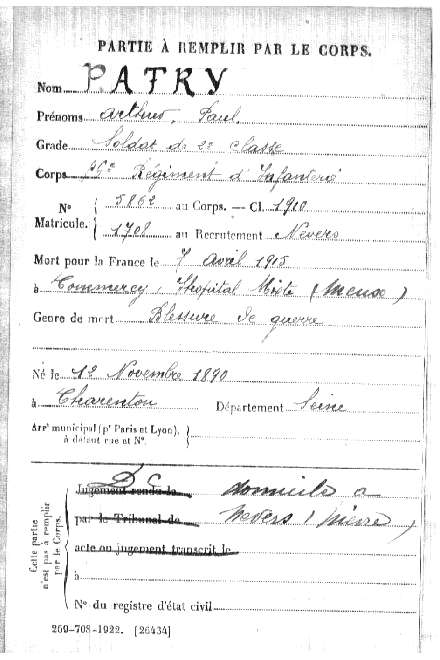 PARTIE À REMPLIR PAR LE CORPS.
Nom PATRY
Prénoms Arthur, Paul.
Grade Soldat de 2e classe
Corps Régiment d'Infanterie
N° 5862 au Corps. — Cl. 1910
Matricule. 1708 au Recrutement Nevers
Mort pour la France le 7 avril 1915
à Commercy, Hopital Mixte (Meuse)
Genre de mort Blessure de guerre
Né le 12 Novembre 1890
à Charenton Département Seine
Arrt municipal (pr Paris et Lyon),
à défaut rue et N°.
Cette partie
n'est pas à remplir
par le Corps.
DC
Jugement rendu le domicile a
par le Tribunal de Nevers (Nievre)
acte ou jugement transcrit le
à
N° du registre d'état civil
269-708-1922. [26434]